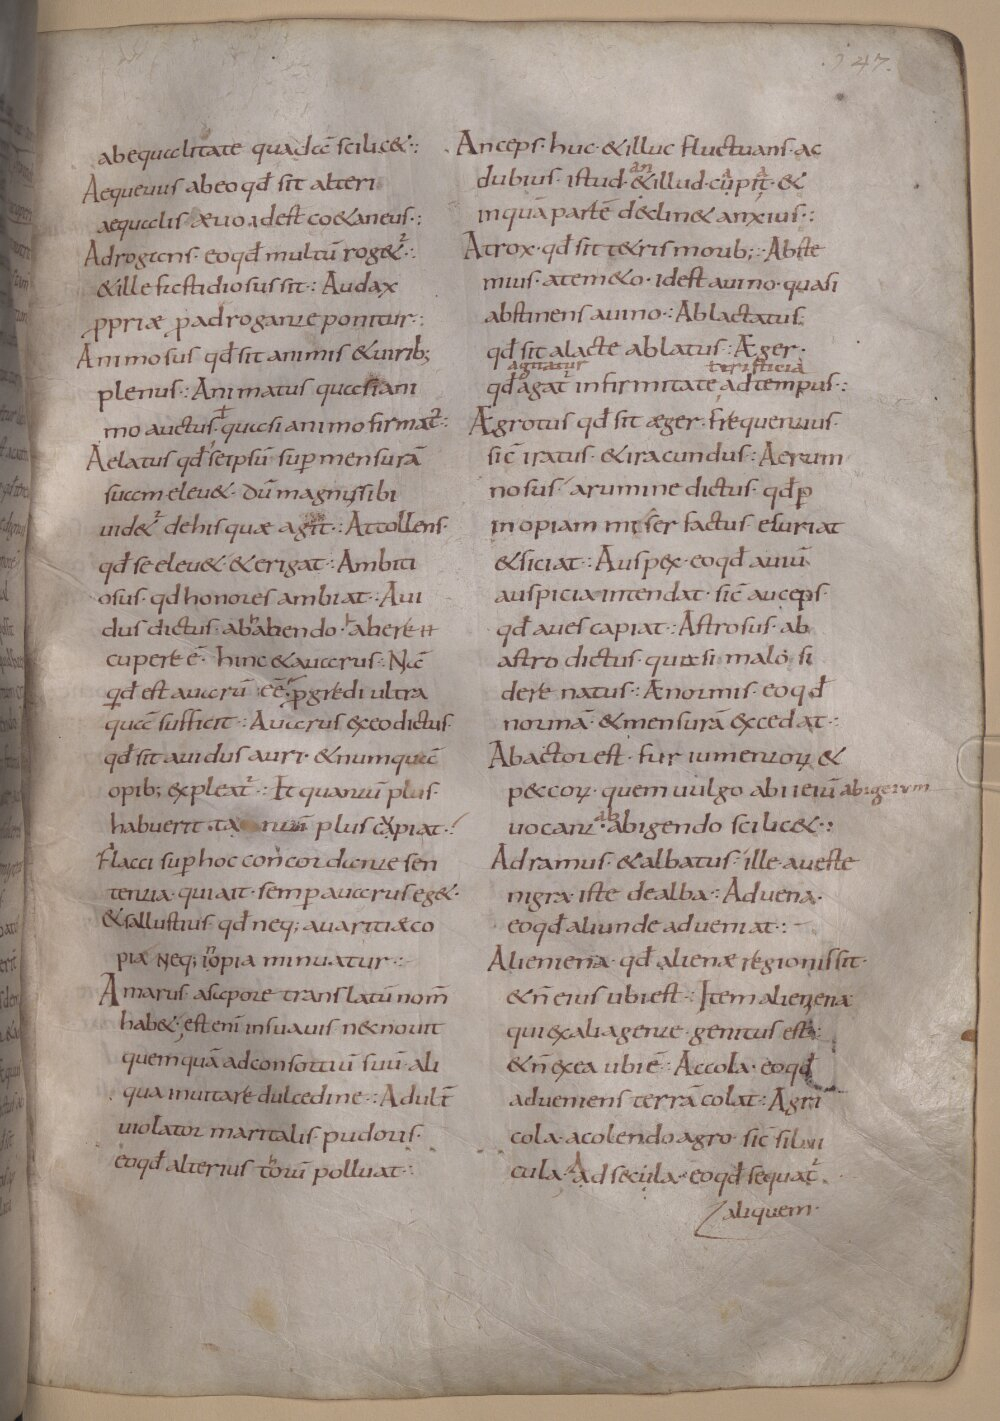 147.
abequalitate quadā scilic&·:
Aequeuus abeo qđ sit alteri
aequalis æuo id est co&aneus·:
Adrogans· eo qđ multū rog&·:
&ille fastidiosus sit·: Audax
ꝓpriæ ꝓ adrogante ponitur·:
Animosus qđ sit animis &uirib;
plenus·: Animatus quasi ani
mo auctus· quasi animo firmat·:
Aelatus qđ seipsū suꝑ mensurā
suam eleu&· dū magnus sibi
uid& de his quæ agit·: Attollens·
qđ se eleu& &erigat·: Ambiti
osus· qđ honores ambiat·: Aui
dus dictus· ab habendo· abere
cupere ē· hinc &auarus·: Nā
qđ est auarū eē· ꝓgredi ultra
quā sufficit·: Auarus ex eo dictus·
qđ sit auidus auri· &numquā
opib; expleat·: Et quantū plus·
habuerit plus cupiat·:
Flacci suꝑ hoc concordante sen
tentia· qui ait· semꝑ auarus eg&·
&sallustius· qđ neq; auaritia co
pia neq; inopia minuatur·:
Amarus asapore translatū nom̄
hab&· est enī insuauis nec nouit
quemquā ad consortiū suū ali
qua inuitare dulcedine·: Adult̄
uiolator maritalis pudoris·
eo qđ alterius thorū polluat·:
Anceps· huc· &illuc fluctuans· ac
dubius· istud· an &illud· cupiat· &
in quā partē declin& anxius·:
Atrox· qđ sit t&ris morib;·: Abste
mius· atem&o· id est auino· quasi
abstinens auino·: Ablactatus·
qđ sit alacte ablatus·: Æger·
agitatur tristicia
qđ agat infirmitate ad tempus·:
Ægrotus qđ sit æger· frequentius·
sic̄ iratus· &iracundus·: Aerum
nosus· arumine dictus· qđ ꝑ
inopiam miser factus esuriat
&siciat·: Auspex· eo qđ auiū
auspicia intendat· sic̄ auceps·
qđ aues capiat·: Astrosus· ab
astro dictus· quasi malo si
dere natus·: Ænormis· eo qđ
normā· &mensurā excedat·:
Abactor est· fur iumentoꝝ &
peccoꝝ· quem uulgo abiieiū abigerum
uocant ab abigendo scilic&·:
Adramus· &albatus· ille aueste
nigra· iste de alba·: Aduena·
eo qđ aliunde adueniat·:
Aliemena· qđ alienæ regionis sit·
&n̄ eius ubi est·: Item alienena
qui ex alia gente· genitus est·
&n̄ ex ea ubi ē·: Accola· eo qđ
adueniens terrā colat·: Agri
cola· acolendo agro· sic̄ silui
cula· Ad secula· eo qđ sequat
aliquem·